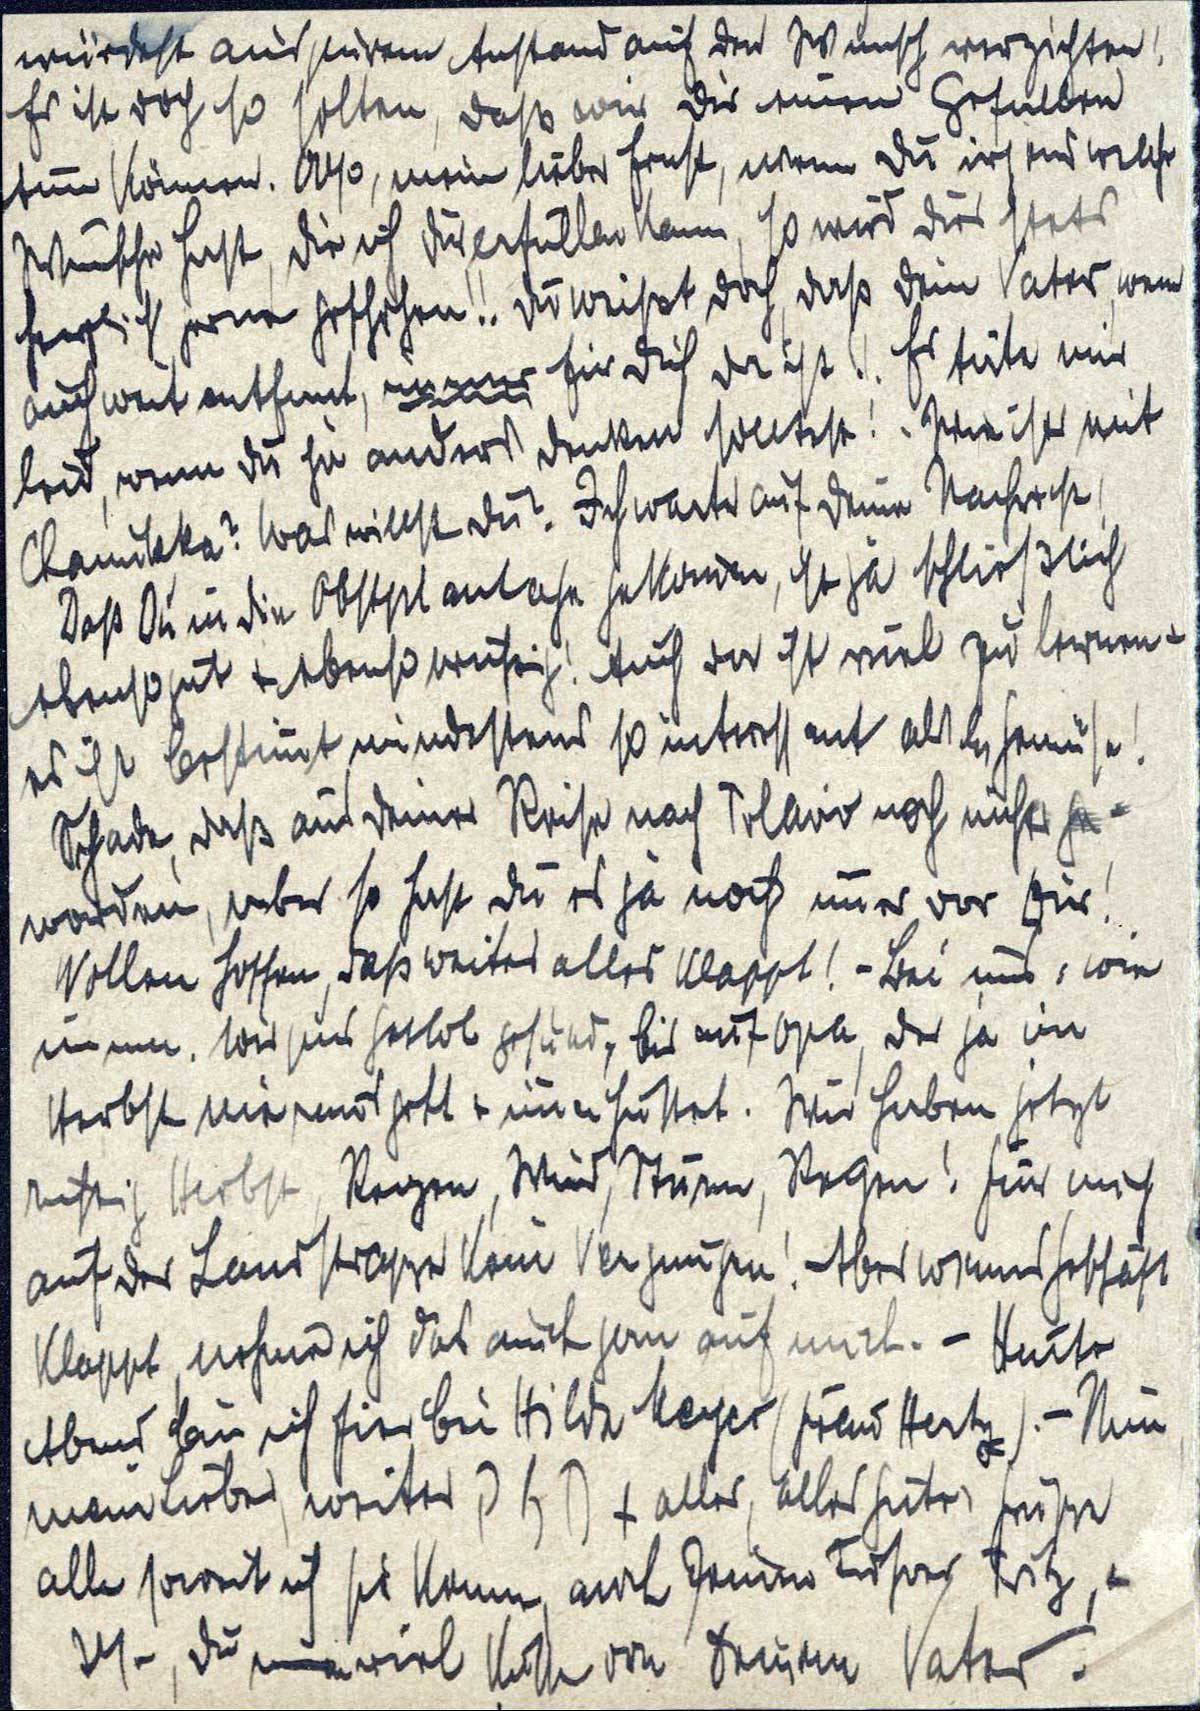 würdest aus purem Anstand auf den Wunsch verzichten!
Es ist doch so selten, daß wir Dir einen Gefallen
tun können. Also, mein lieber Ernst, wenn Du irgendwelche
Wünsche hast, die ich Dir erfüllen kann, so wird dies stets
herzlich gerne geschehen!! Du weißt doch, daß Dein Vater, wenn
auch weit entfernt, immer für Dich da ist!! Es täte mir
leid, wenn Du hier anders denken solltest! - Wie ist's mit
Chanukka? Was willst Du? Ich warte auf Deine Nachricht!
Daß Du in die Obstplantage gekommen, ist ja schließlich
ebenso gut + ebenso wichtig! Auch da ist viel zu lernen +
es ist bestimmt mindestens so interessant als in Gemüse!
Schade, daß aus Deiner Reise nach Telaviv noch nichts ge-
worden, aber so hast Du es ja noch immer vor Dir!
Wollen hoffen, daß weiter alles klappt! - Bei uns, wie
immer. Wir sind gottlob gesund, bis auf Opa, der ja im
Herbst nie ausgeht + immer hustet. Wir haben jetzt
richtig Herbst, Regen, Wind, Sturm, Regen! Für mich
auf der Landstrasse kein Vergnügen! - Aber wenns Geschäft
klappt, nehme ich das auch gern auf mich. - Heute
Abend bin ich hier bei Hilde Meyer (Hertz). - Nun
mein Lieber, weiter חזק + alles, alles Gute, grüsse
alle soweit ich sie kenne, auch Deinen Führer Fritz, +
Du viel Küsse von Deinem Vater.